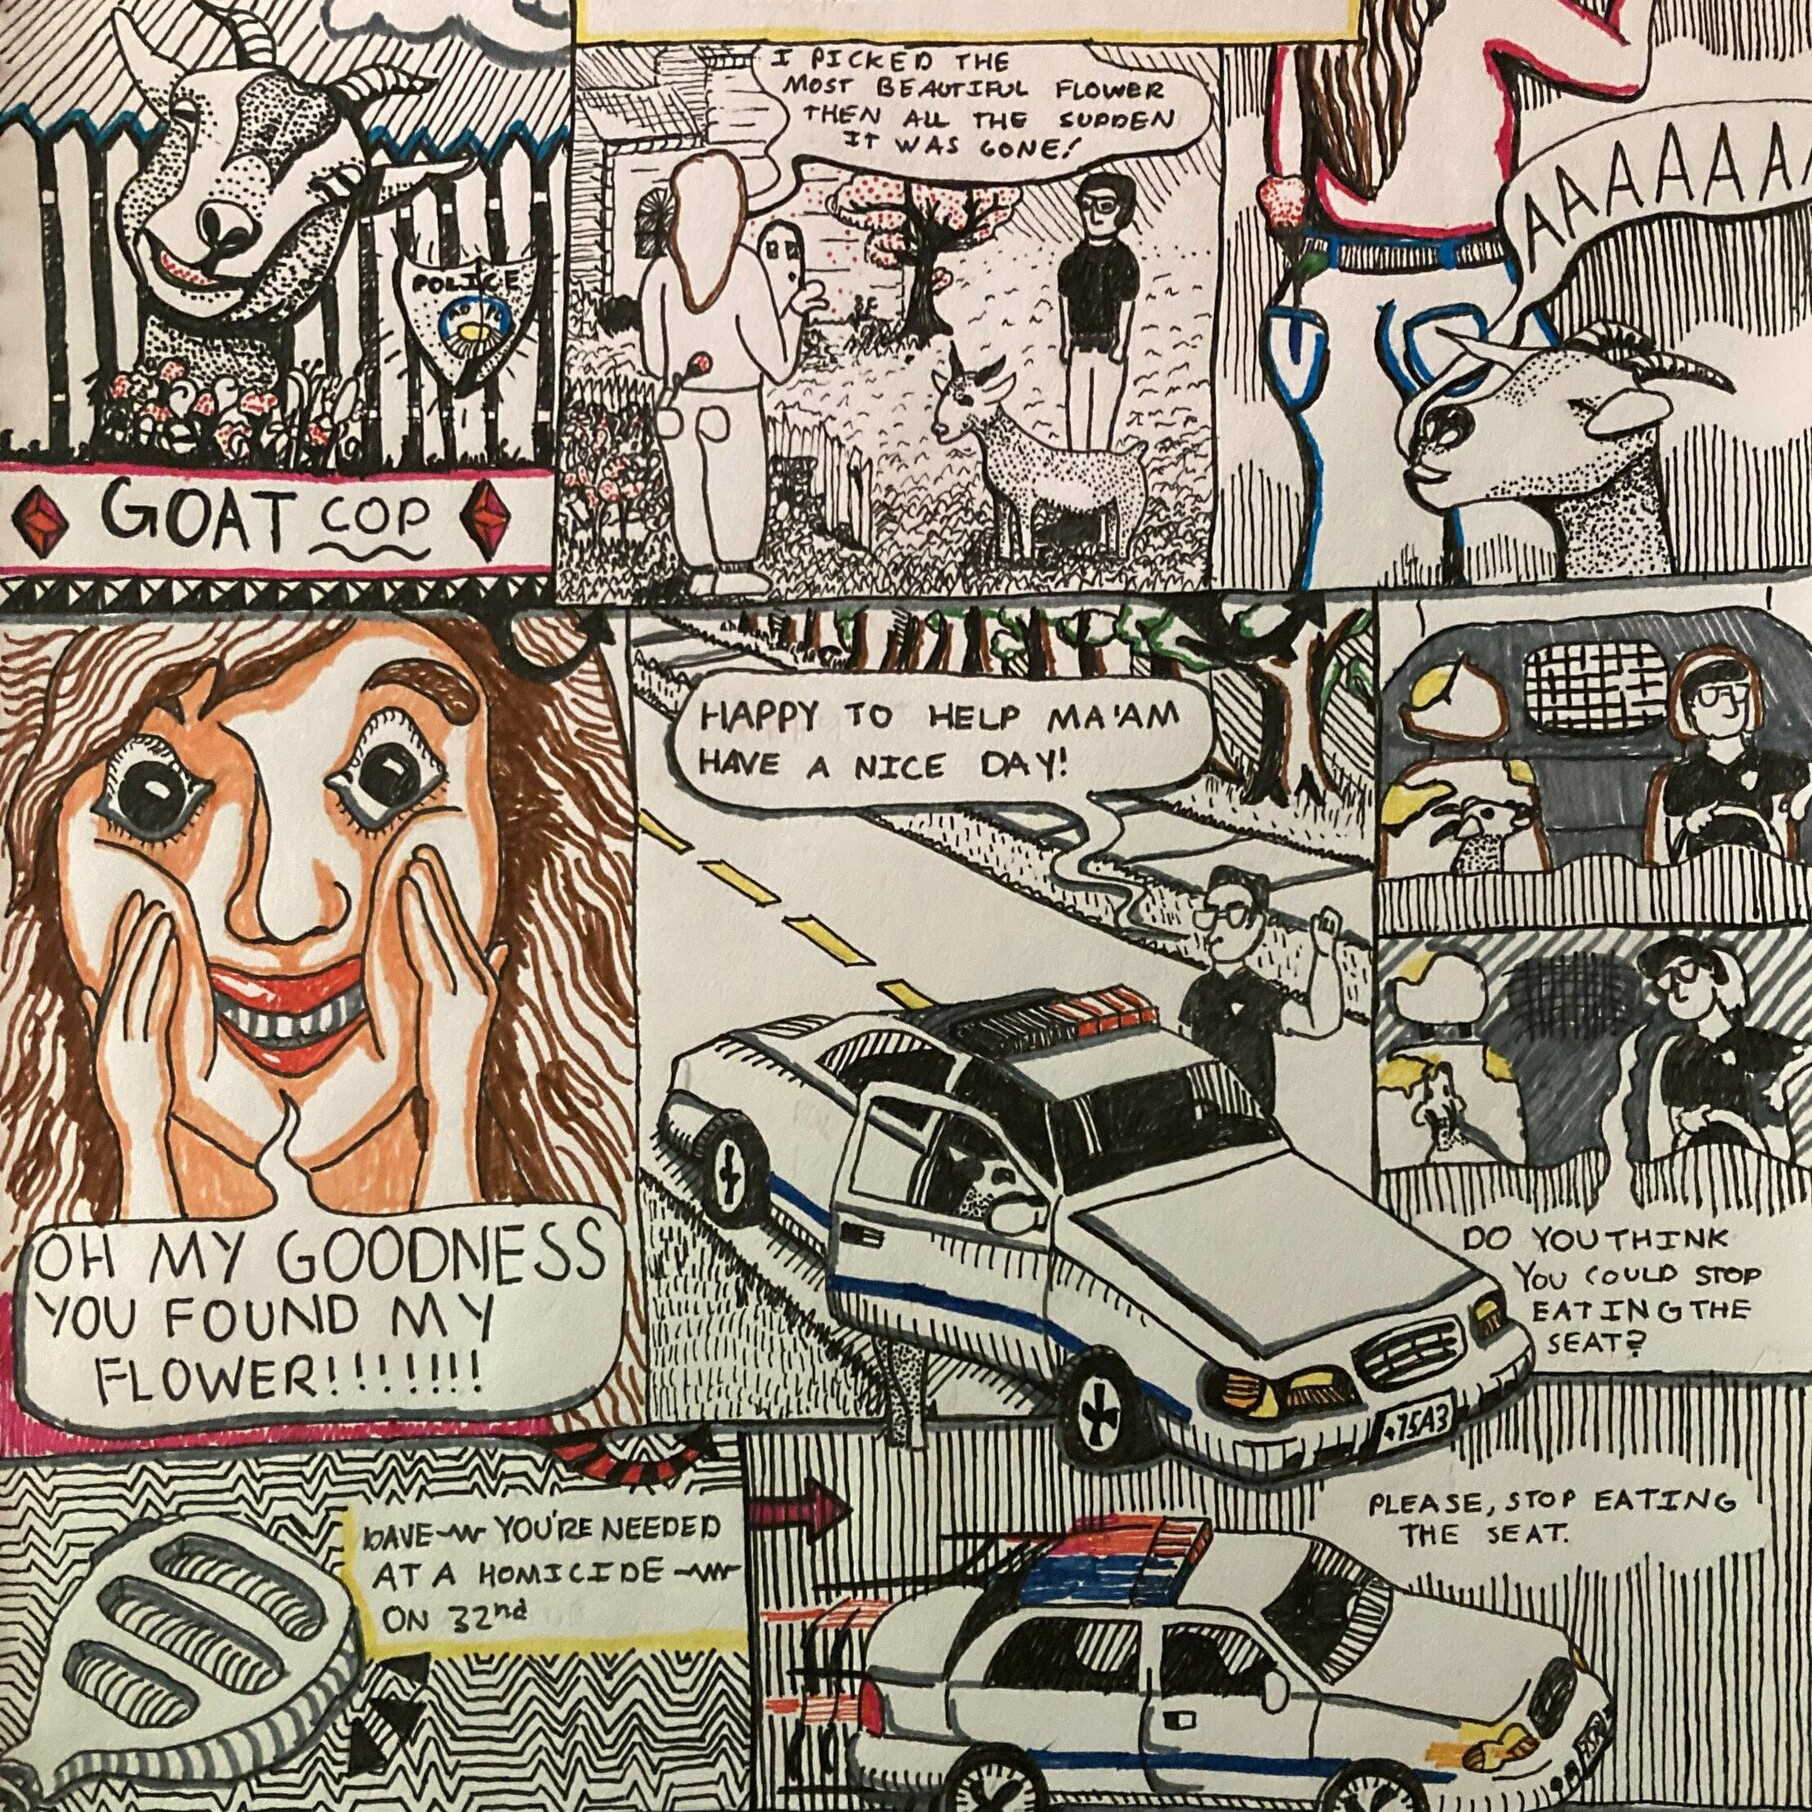 POLICE
GOAT COP
I PICKED THE
MOST BEAUTIFUL FLOWER
THEN ALL THE SUDDEN
IT WAS GONE!
AAAAAAA
OH MY GOODNESS
YOU FOUND MY
FLOWER!!!!!!!
HAPPY TO HELP MA'AM
HAVE A NICE DAY!
DO YOU THINK
YOU COULD STOP
EATING THE
SEAT?
DAVE YOU'RE NEEDED
AT A HOMICIDE
ON 32nd
PLEASE, STOP EATING
THE SEAT.